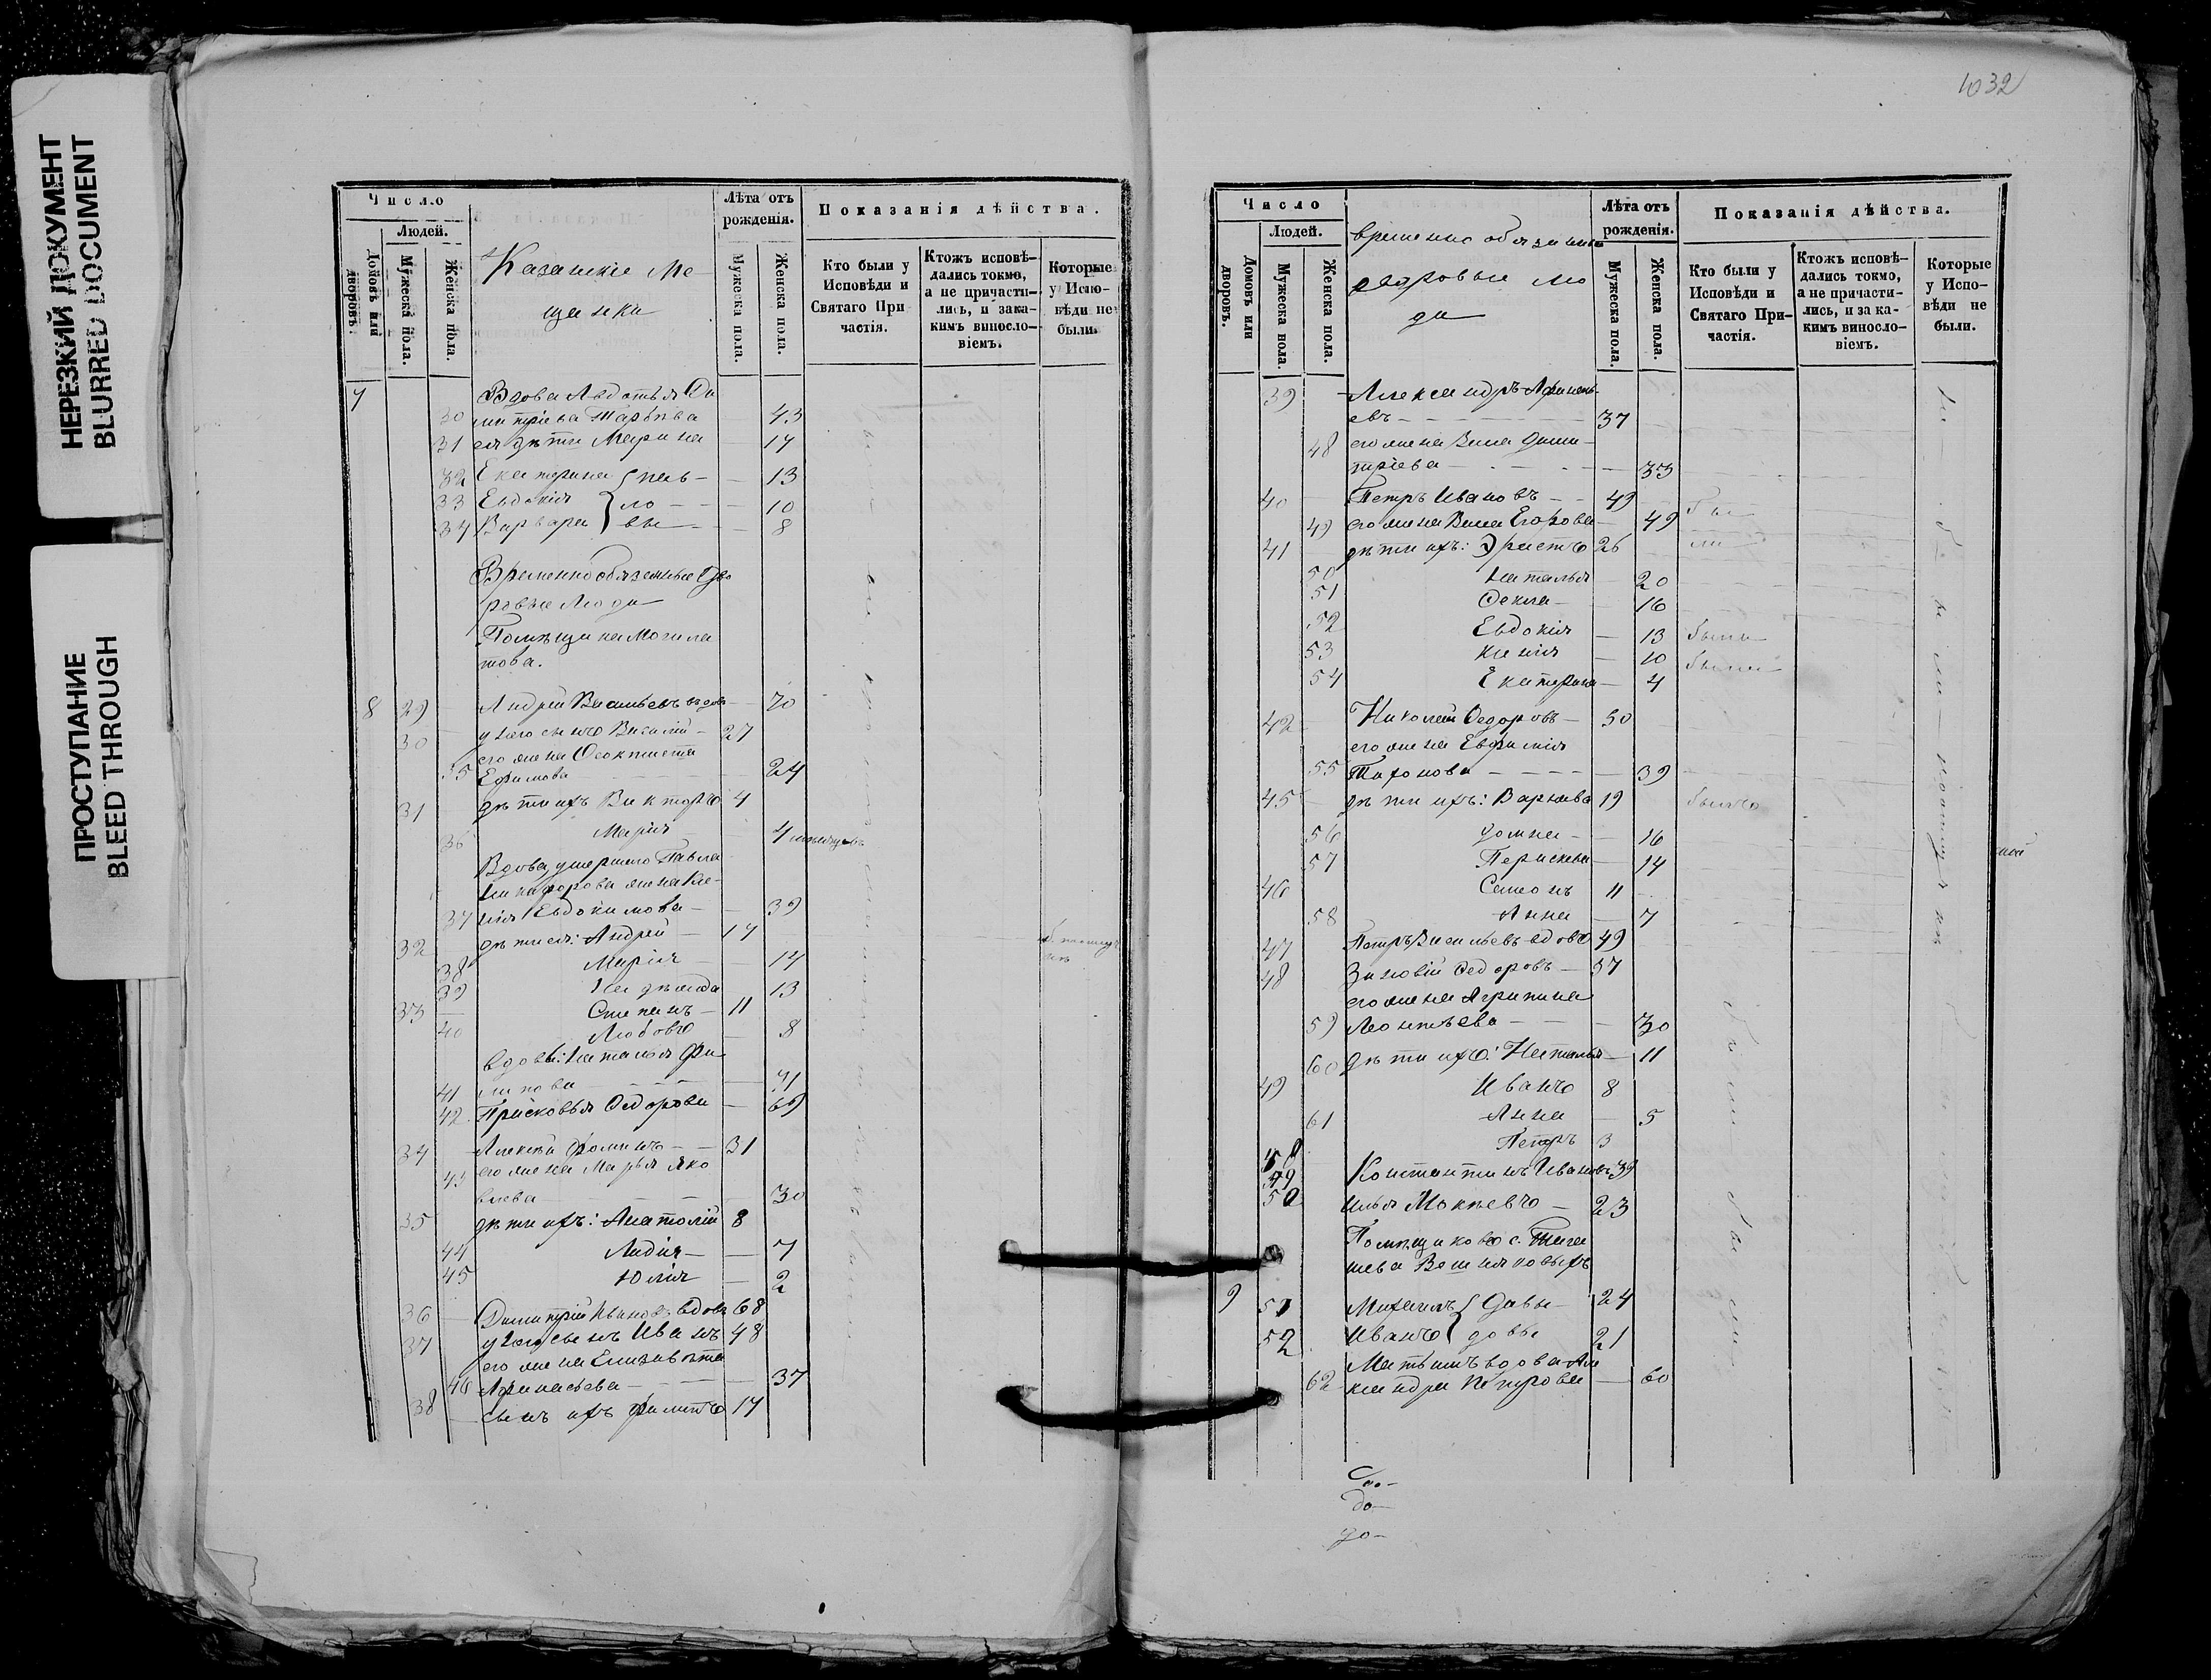 НЕРЕЗКИЙ ДОКУМЕНТ
BLURRED DOCUMENT
ПРОСТУПАНИЕ
BLEED THROUGH
Число
Людей.
Домовъ или дворовъ.
Мужеска пола.
Женска пола.
Казанскіе Ме-
щанки
Лѣта отъ рожденія.
Мужеска пола.
Женска пола.
Показанія дѣйства.
Кто были у Исповѣди и Святаго Причастія.
Ктожъ исповѣ-
дались токмо,
а не причасти-
лись, и за ка-
кимъ винословіемъ.
Которые у Исповѣди не были.
7 Вдова Авдотья Ди
30 митріева 43
31 ея дѣти Марина 17
32 Екатерина Пав- 13
33 Евдокія ло 10
34 Варвара вы 8
Временнообязанные Дво
ровые Люди
Помѣщика Могила
това.
8 29 Андрей Васильевъ вдовъ 70
30 у него сынъ Василій 27
его жена Феоктиста
35 Ефимова 24
31 дѣти ихъ Викторъ 4
36 Марія 4 мѣсяцовъ
Вдова, умершаго Павла
Никифорова жена Ксе-
37 нія Евдокимова 39
32 дѣти ея: Андрей 17
38 Марія 14
39 Надежда 13
33 Степанъ 11
40 Любовь 8
Вдовы: Наталья Фи
41 липова 71
42 Прасковья Федорова 69
34 Алексѣй Фоминъ 31
43 его жена Марья Яко
влева 30
35 дѣти ихъ: Анатолій 8
44 Лидія 7
45 Юлія 2
36 Димитрій Ивановъ вдовъ 68
37 у него сынъ Иванъ 48
его жена Елизавета
46 Афанасьева 37
38 сынъ ихъ Филипъ 17
1032
Число
Людей.
Домовъ или дворовъ.
Мужеска пола.
Женска пола.
временно обязанные
дворовые лю
ди
Лѣта отъ рожденія.
Мужеска пола.
Женска пола.
Показанія дѣйства.
Кто были у Исповѣди и Святаго Причастія.
Ктожъ исповѣ-
дались токмо,
а не причасти-
лись, и за ка-
кимъ винословіемъ.
Которые у Исповѣди не были.
39 Александръ Афанась-
евъ 37
48 его жена Анна Дими-
тріева 33
40 Петръ Ивановъ 49 Бы
49 его жена Анна Егорова 49
41 дѣти ихъ: Эрастъ 26 ли
50 Наталья 20
51 Фекла 16
52 Евдокія 13 была
53 Ксенія 10 была
54 Екатерина 4
42 Николай Федоровъ 50
его жена Евфимія
55 Тихонова 39
45 дѣти ихъ: Варнава 19 былъ
56 Домна 16
57 Параскева 14
46 Самонъ 11
58 Анна 7
47 Петръ Васильевъ вдовъ 49
48 Зиновій Федоровъ 37
его жена Агрипина
59 Леонтьева 30
60 дѣти ихъ: Наталья 11
49 Иванъ 8
61 Анна 5
Петръ 3
49 Константинъ Ивановъ 39
50 Илья Мокѣевъ 23
Помѣщиковъ с.
51 9 Михаилъ Давы- 24
52 Иванъ довы 21
Мать ихъ вдова Але
62 ксандра Петрова 60